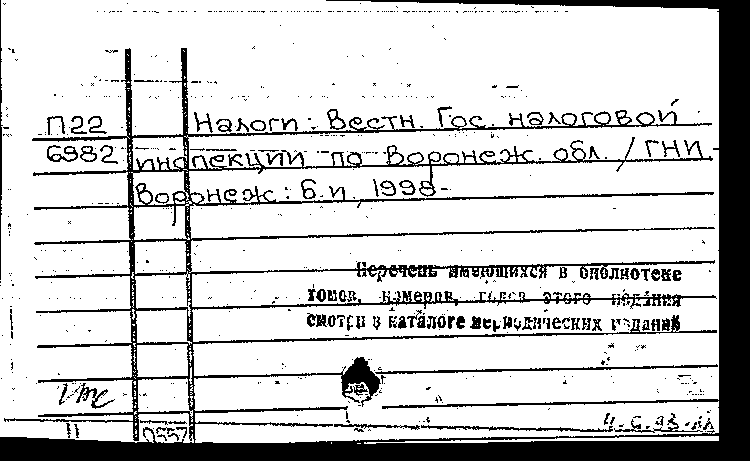 П22 Налоги: Вестн. Гос. налоговой
6982 инспекции по Воронеж. обл. / ГНИ.-
Воронеж: Б.и, 1998-
Перечень имеющихся в библиотеке
томов, номеров, годов этого издания
смотри в каталоге периодических изданий